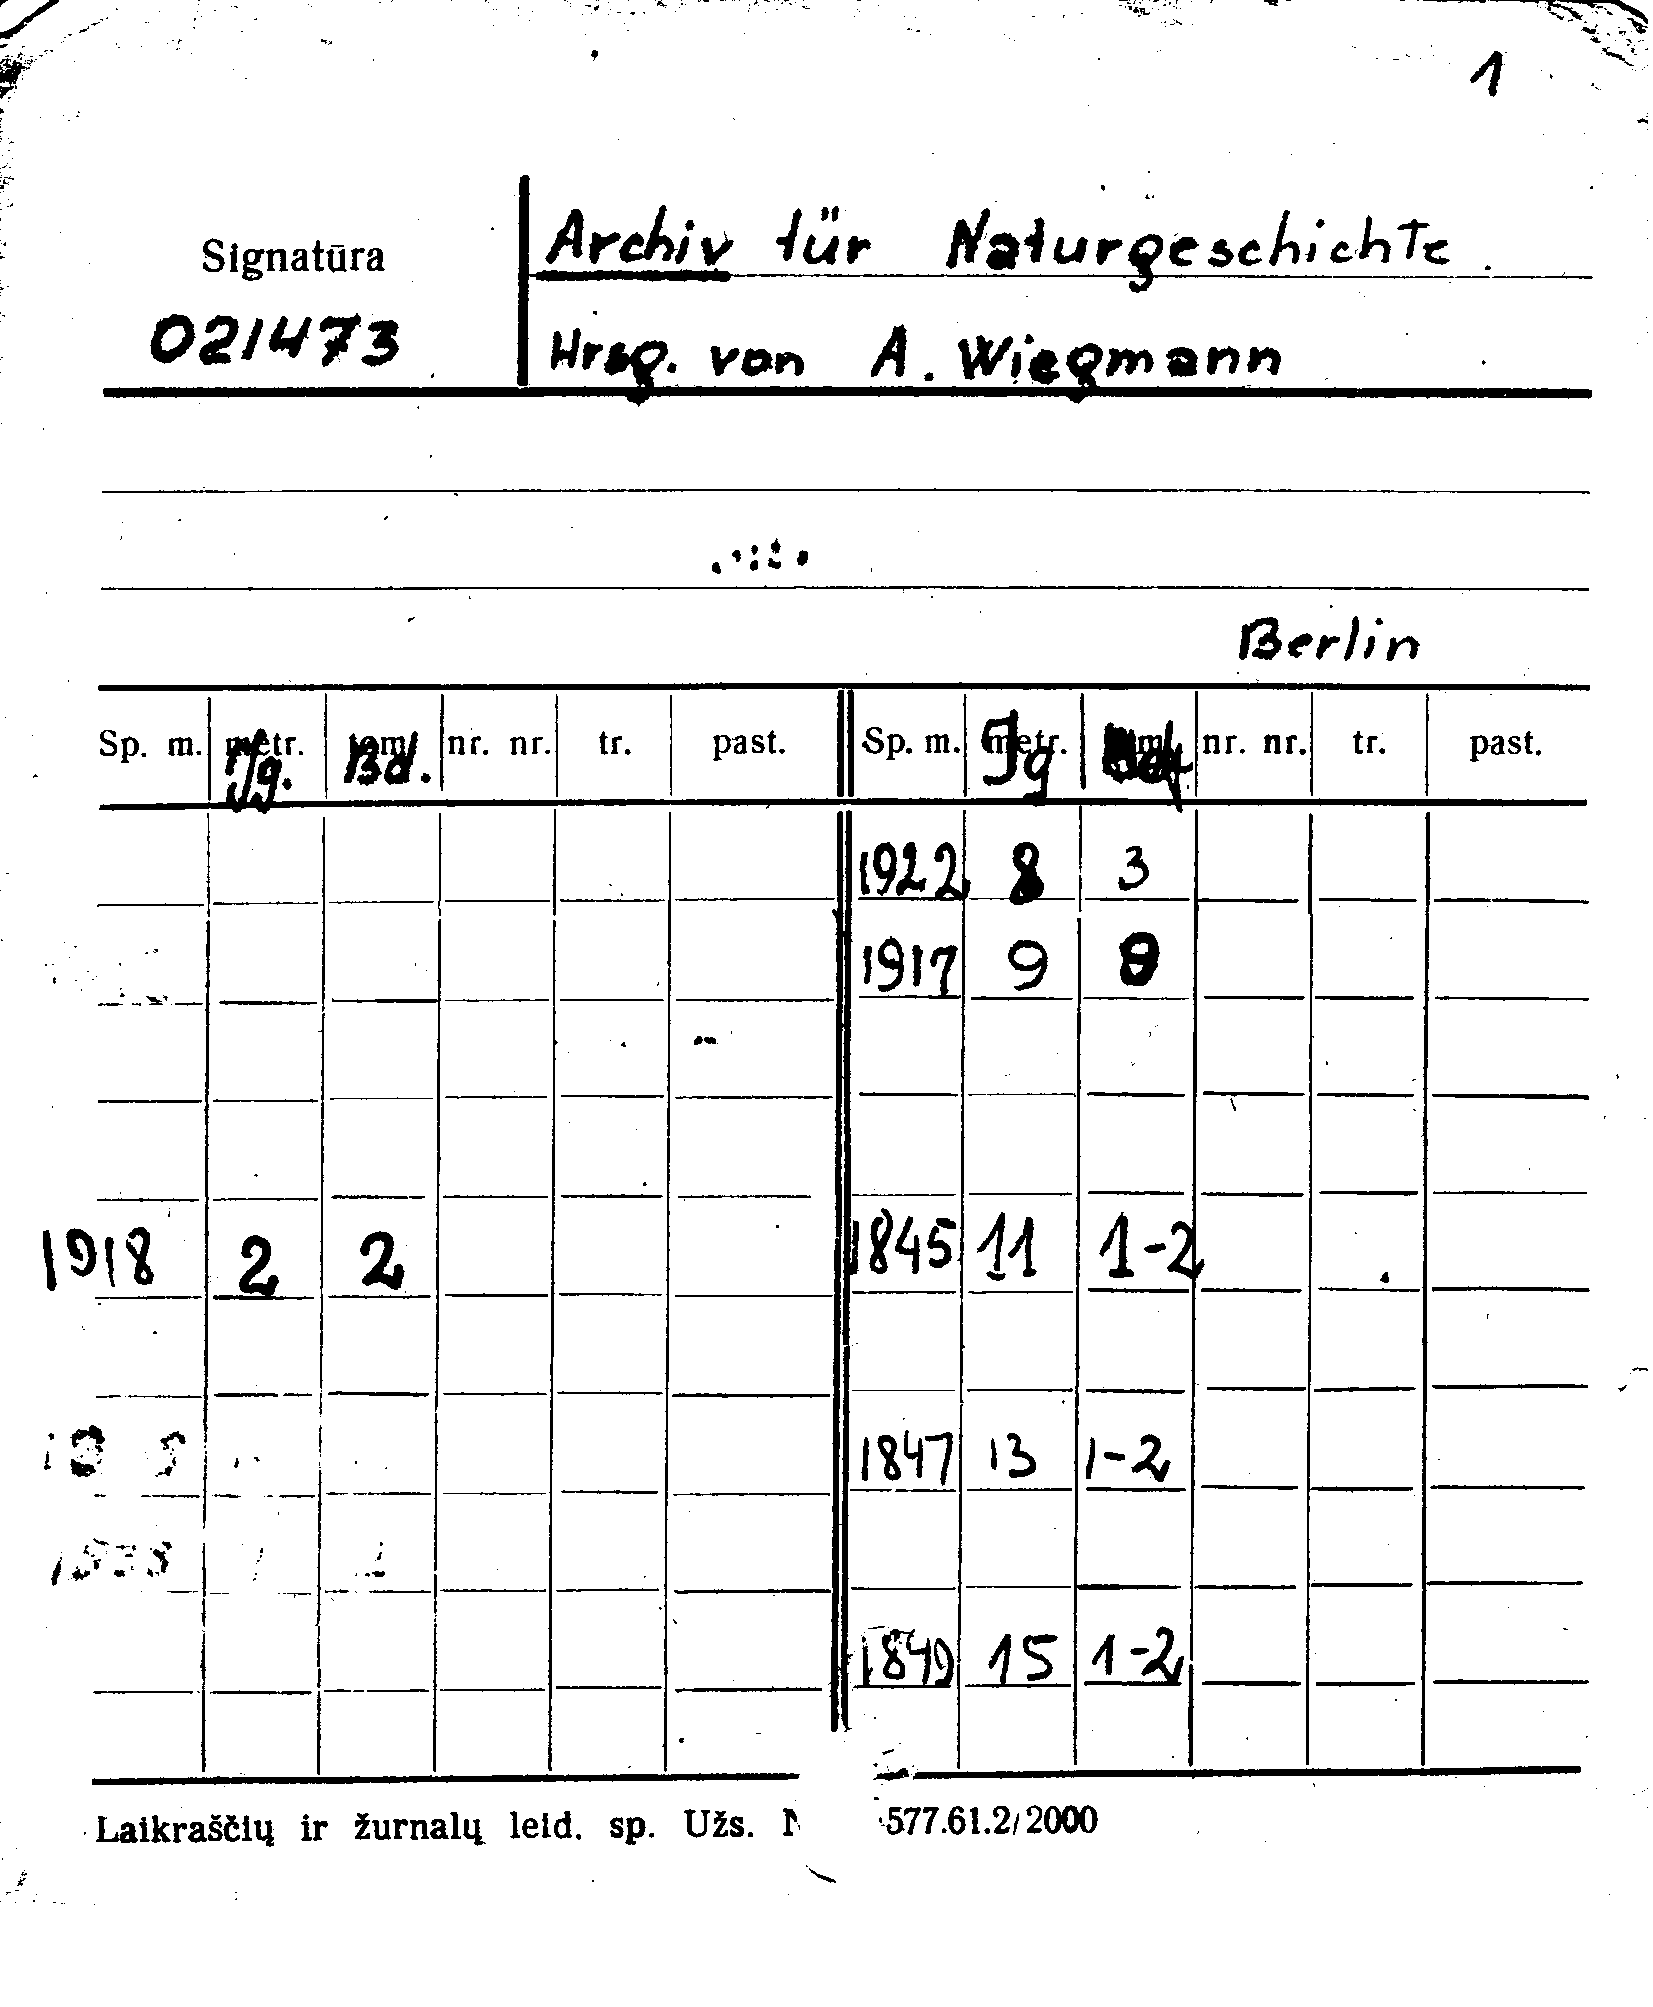 1
Signatūra
Archiv für Naturgeschichte
021473
Hrsg. von A. Wiegmann
Berlin
Sp. m. metr. tom. nr. nr. tr. past. Sp. m. metr. nr. nr. tr. past.
Jg. Bd. Jg
1922 8 3
1917 9
1918 2 2 1845 11 1-2
1847 13 1-2
1849 15 1-2
Laikraščių ir žurnalų leid. sp. Užs. 577.61.2/2000